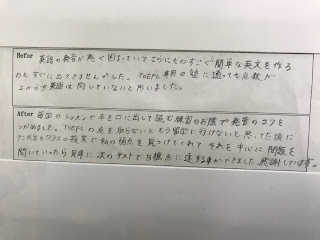 Befor 英語の発音が悪く困まっていてさらにものすごく簡単な英文を作る
のもすぐに出てきませんでした。TOEFL専用の塾に通っても点数が
上がらず英語は向いていないと思いました。
After 毎回のレッスンや本を口に出して読む練習のお陰で発音のコツを
つかめました。TOEFLの点を取らないともう留学に行けないと思ってた頃に
先生のクラスの授業で私の弱点を見つけてくれてそれを中心に問題を
聞いていったら見事に次のテストで目標点に達する事ができました。感謝しています。